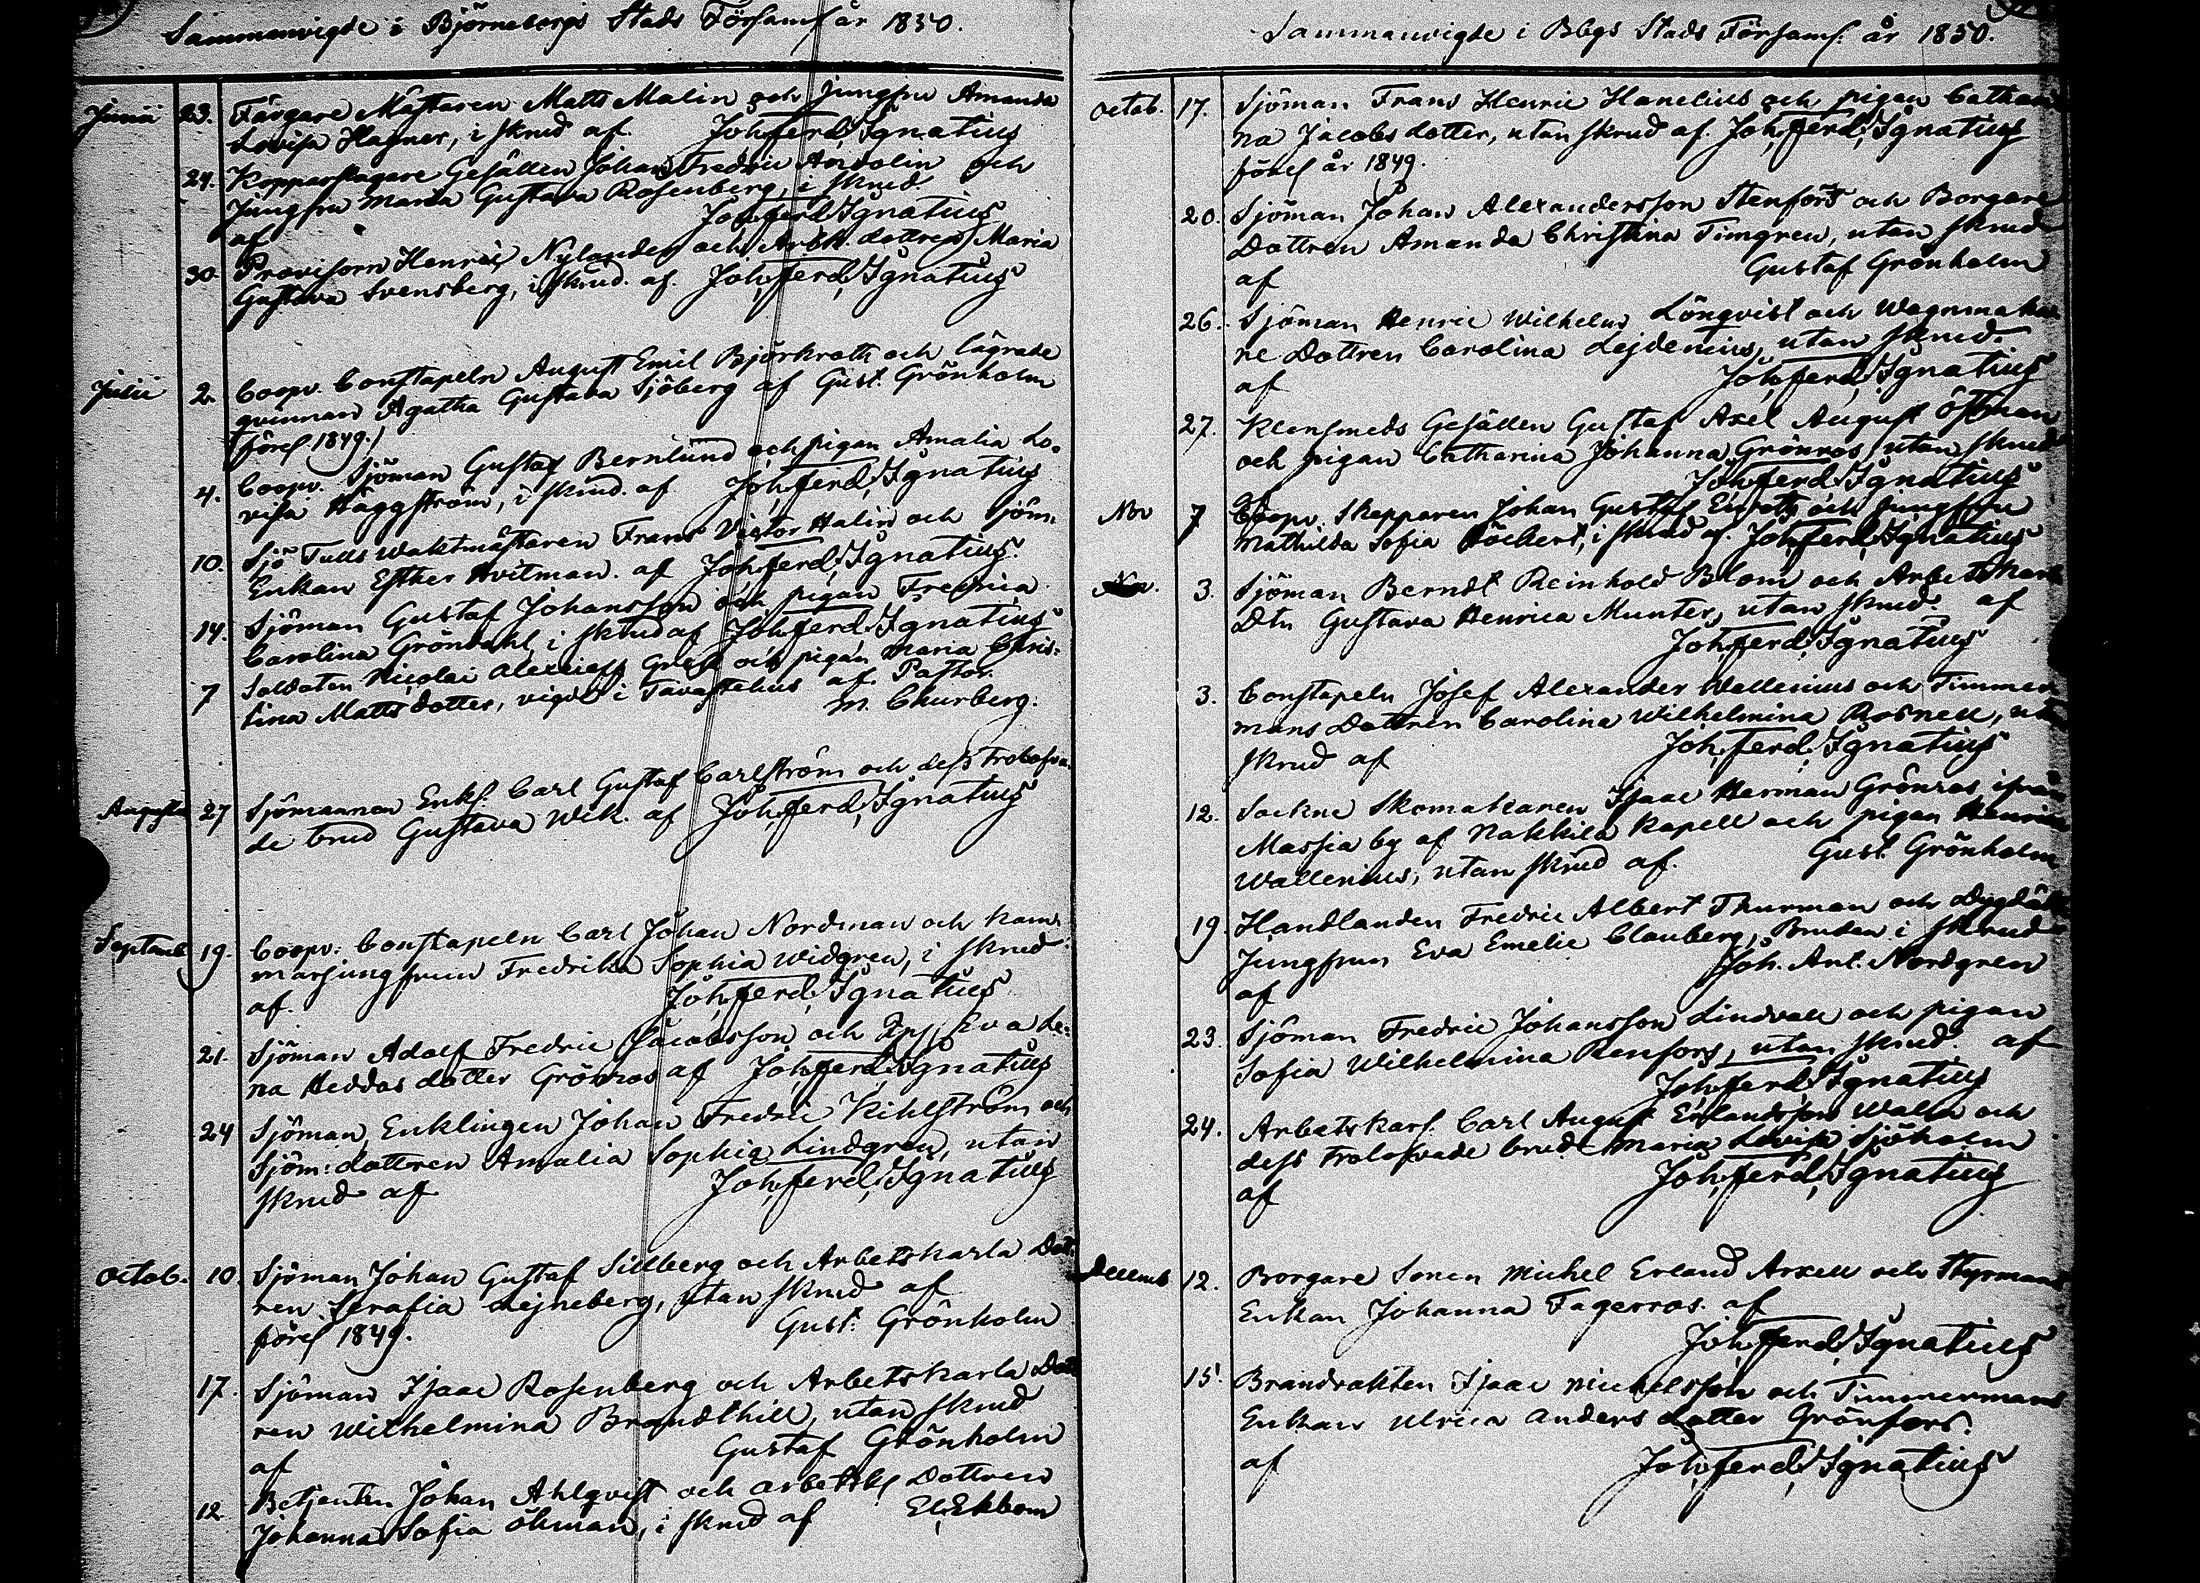 Sammanvigde i Björneborgs Stads Församl år 1850.
Junii 23. Färgare Mästaren Matts Malin och Jungfru Amanda
Lovisa Hagner, i skrud af Joh. Ferd. Ignatius
24. Kopparslagare Gesällen Johan Fredric Andolin och
Jungfru Maria Gustava Rosenberg, i skrud
af Joh. Ferd. Ignatius
30 Provisorn Henric Nylander och Arbk. dottren Maria
Gustava Svensberg, i skrud. af. Joh. Ferd. Ignatius
Julii 2. Coopv. Constapeln August Emil Björkroth och lägrade
qvinnan Agatha Gustava Sjöberg af Gust. Grönholm
(förel 1849.)
4. Coopv. Sjöman Gustaf Bernlund och pigan Amalia Lo-
visa Häggström, i skrud. af Joh. Ferd. Ignatius
10. Sjö Tulls Waktmästaren Frans Victor Halin och Sjöm.
Enkan Esther Hvitman. af Joh. Ferd. Ignatius.
14. Sjöman Gustaf Johansson och pigan Fredrica
Carolina Gröndahl, i skrud af Joh. Ferd. Ignatius
7 Soldaten Nicolai Alexieff och pigan Maria Chris-
tina Mattsdotter, vigde i Tavastehus af. Pastor
M. Churberg.
Augusti 27 Sjömannen Enkl. Carl Gustaf Carlström och dess trolofva-
de brud Gustava Wik. af Joh. Ferd. Ignatius
Septemb 19. Coopv: Constapeln Carl Johan Nordman och Kam-
marjungfrun Fredrika Sophia Widgren, i skrud
af. Joh. Ferd. Ignatius
21. Sjöman Adolf Fredric Jacobsson och Eva Le-
na Heddasdotter Grönros af Joh. Ferd. Ignatius
24 Sjöman, Enklingen Johan Fredric Kihlström och
Sjöm: dottren Amalia Sophia Lindgren, utan
skrud af Joh. Ferd. Ignatius
Octob. 10. Sjöman Johan Gustaf Sillberg och Arbetskarla Dott-
ren Serafia Lejneberg, utan skrud af
förel 1849. Gust: Grönholm
17. Sjöman Isaac Rosenberg och Arbetskarla Dott
ren Wilhelmina Brandthill, utan skrud
af Gustaf Grönholm
12. Betjenten Johan Ahlqvist och arbetsk. Dottren
Johanna Sofia Öhman, i skrud af El. Ekbom
Sammanvigde i Bbgs Stads Församl. år 1850.
Octob. 17. Sjöman Frans Henric Hanelius och pigan Cathari
na Jacobsdotter, utan skrud af. Joh. Ferd. Ignatius
förel år 1849.
20. Sjöman Johan Alexandersson Stenfors och Borgare
Dottren Amanda Christina Timgren, utan skrud
af Gustaf Grönholm
26. Sjöman Henric Wilhelm Lönqvist och Wagnmaka
re Dottren Carolina Lejdenius, utan skrud.
af Joh. Ferd. Ignatius
27. Klensmeds Gesällen Gustaf Axel August Östman
och pigan Catharina Johanna Grönros, utan skrud
Joh. Ferd. Ignatius
Nov 7 Coopv. Skepparen Johan Gustaf Enroth och Jungfru
Mathilda Sofia Röckert, i skrud af. Joh. Ferd. Ignatius
3. Sjöman Berndt Reinhold Blom och Arbetskarl
Dtr Gustava Henrica Munter, utan skrud. af
Joh. Ferd. Ignatius
3. Constapeln Josef Alexander Wallenius och Timmer
mans Dottren Carolina Wilhelmina Rosnell, utan
skrud af Joh. Ferd. Ignatius
12. Sockne Skomakaren Isaac Herman Grönros ifrån
Massia by af Nakkila Kapell och pigan Henrica
Wallenius, utan skrud af. Gust. Grönholm
19. Handlanden Fredric Albert Thurman och Dygdädla
Jungfrun Eva Emelie Clauberg, Bruden i skrud
af Joh. Ant. Nordgren
23. Sjöman Fredric Johansson Lindvall och pigan
Sofia Wilhelmina Renfors, utan skrud. af
Joh. Ferd. Ignatius
24. Arbetskarl. Carl August Erlandsson Walln och
dess trolofvade brud Maria Lovisa Sjöholm
af Joh. Ferd. Ignatius
Decemb 12. Borgare Sonen Michel Erland Arxell och Styrmans
Enkan Johanna Fagerros. af
Joh. Ferd. Ignatius
15. Brandvakten Isaac Michelsson och Timmermans
Enkan Ulrica Andersdotter Grönfors.
af Joh. Ferd. Ignatius